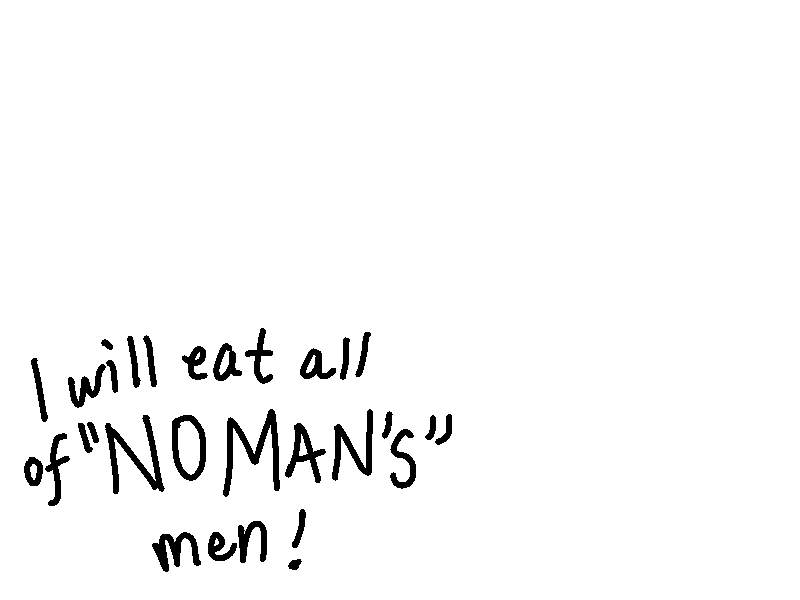 I will eat all
of "NOMAN'S"
men!